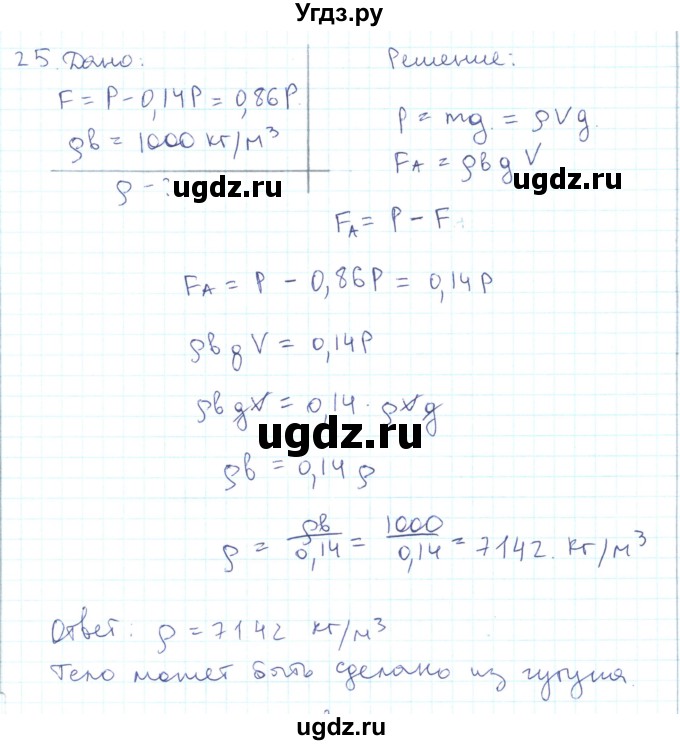 Угдз.ру
25. Дано:
F = P - 0,14P = 0,86P
ρв = 1000 кг/м³
ρ - ?
Решение:
P = mg = ρVg
FA = ρв g V
ugdz.ru
ugdz.ru
FA = P - F
FA = P - 0,86P = 0,14P
ρв g V = 0,14P
ρв gV = 0,14 · ρVg
ugdz.ru
ρв = 0,14 ρ
ρ = ρв/0,14 = 1000/0,14 = 7142 кг/м³
Ответ: ρ = 7142 кг/м³
Тело может быть сделано из чугуна.
ugdz.ru